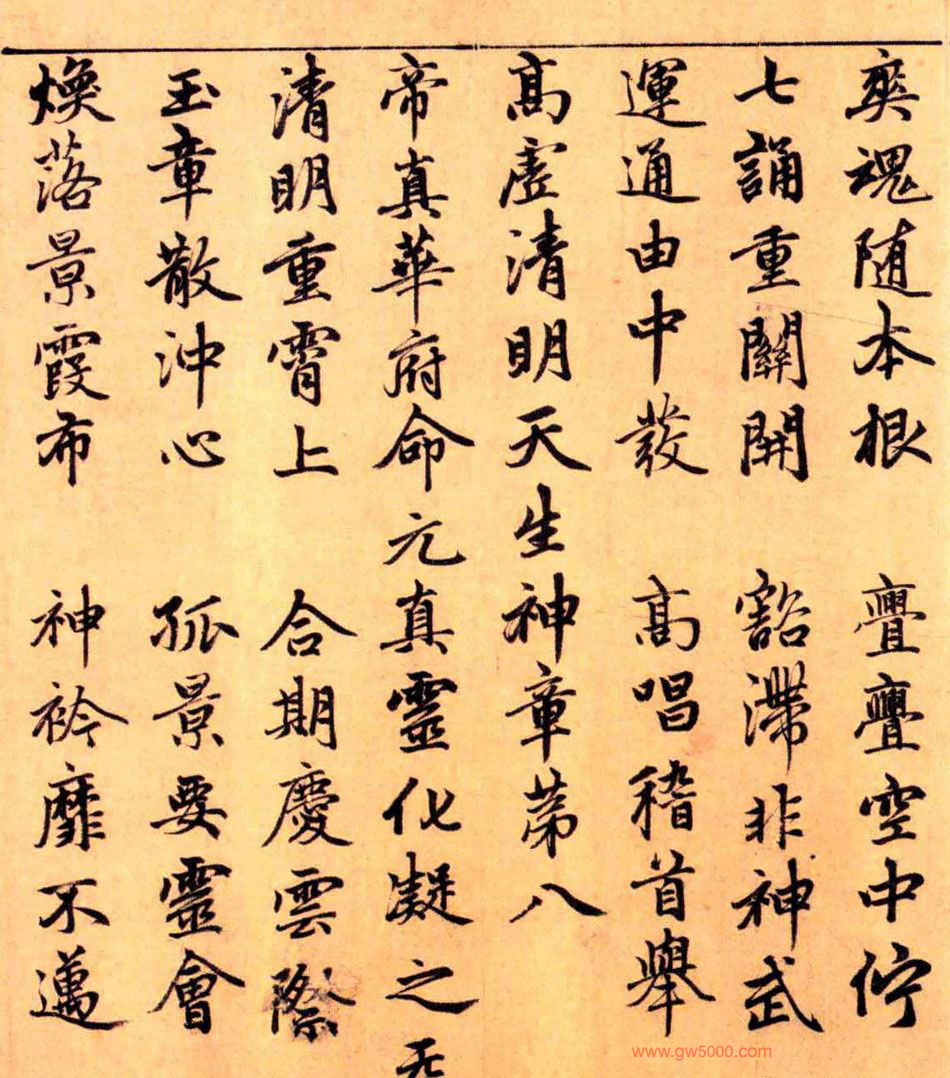 奕魂随本根 亹亹空中佇
七誦重關開 豁滯非神武
運通由中發 髙唱稽首舉
髙虛清明天生神章苐八
帝真華府命元真靈化凝之炁
清明重霄上 合期慶雲際
玉章散沖心 孤景要靈會
煥落景霞布 神衿靡不邁
www.gw5000.com